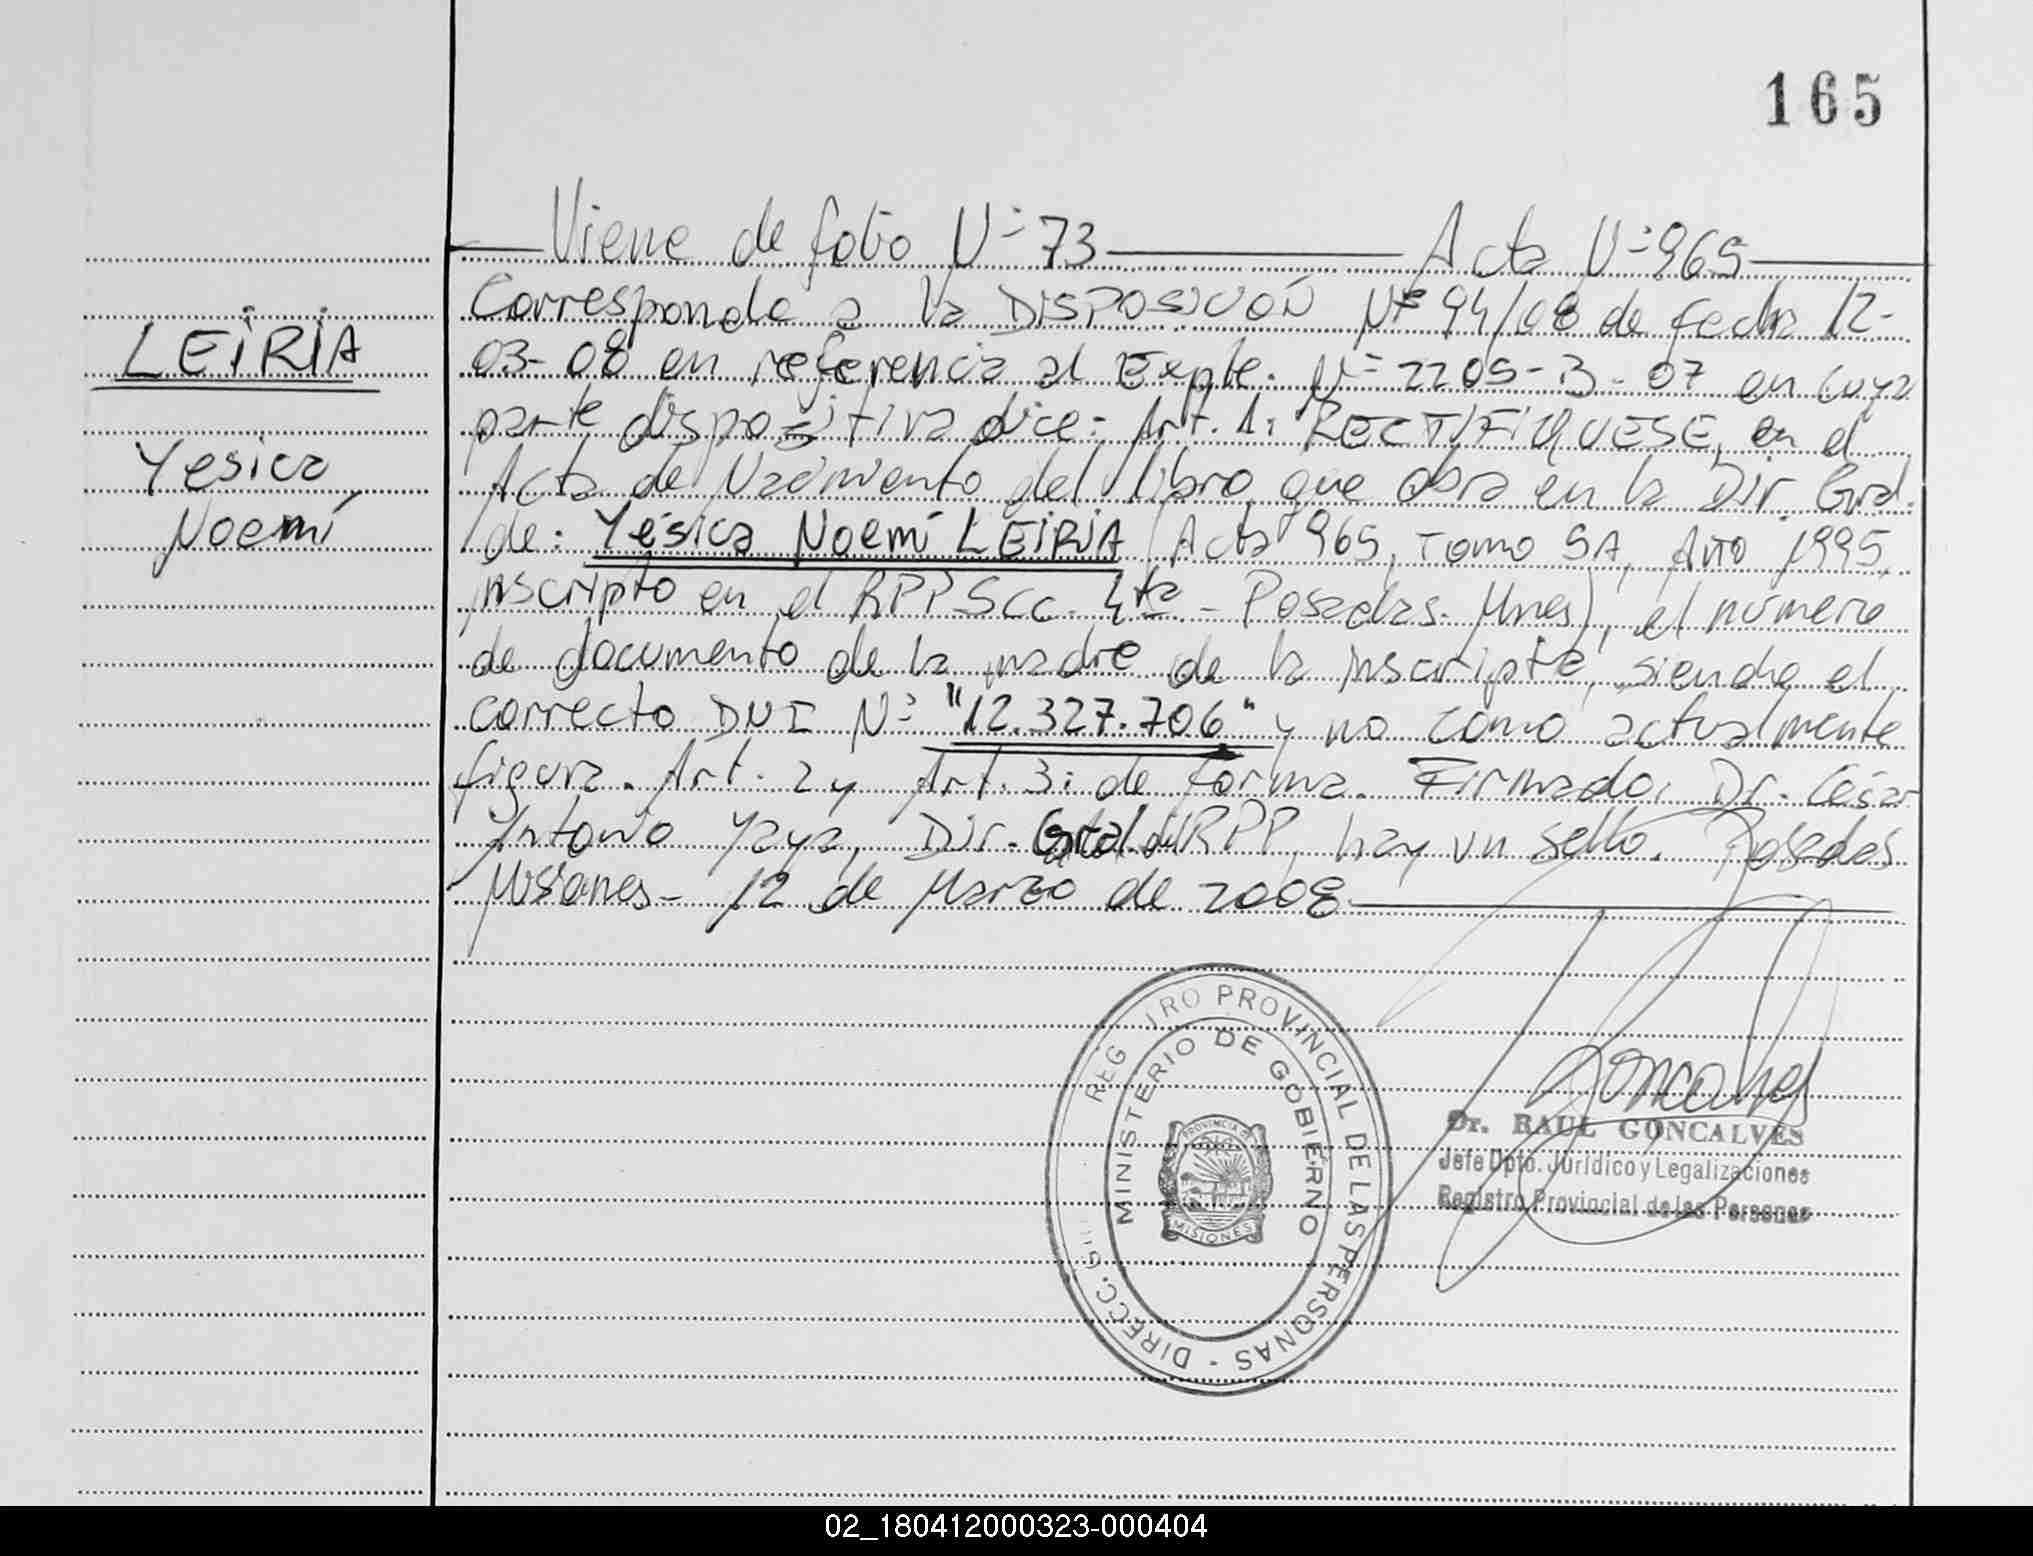 165
Viene de folio Nº 73 Acta Nº 965
Corresponde a la DISPOSICIÓN Nº 94/08 de fecha 12-
LEIRIA
03-08 en referencia al Expte. Nº 2205-B-07 en cuya
parte dispositiva dice: Art. 1: RECTIFIQUESE, en el
Yesica
Acta de Nacimiento del libro que obra en la Dir. Gral.
Noemí
de: Yésica Noemí LEIRIA (Acta 965, Tomo 5A, Año 1995,
inscripto en el RPPScc. 4ta - Posadas. Mnes), el número
de documento de la madre de la inscripta, siendo el
correcto DNI Nº "12.327.706" y no como actualmente
figura. Art. 2 y Art. 3: de forma. Firmado: Dr. César
Antonio Yaya, Dir. Gral. del RPP, hay un sello. Posadas
Misiones - 12 de Marzo de 2008
REGISTRO PROVINCIAL DE LAS PERSONAS - DIRECC.
MINISTERIO DE GOBIERNO
PROVINCIA DE
MISIONES
Goncalves
Dr. RAUL GONCALVES
Jefe Dpto. Jurídico y Legalizaciones
Registro Provincial de las Personas
02_180412000323-000404